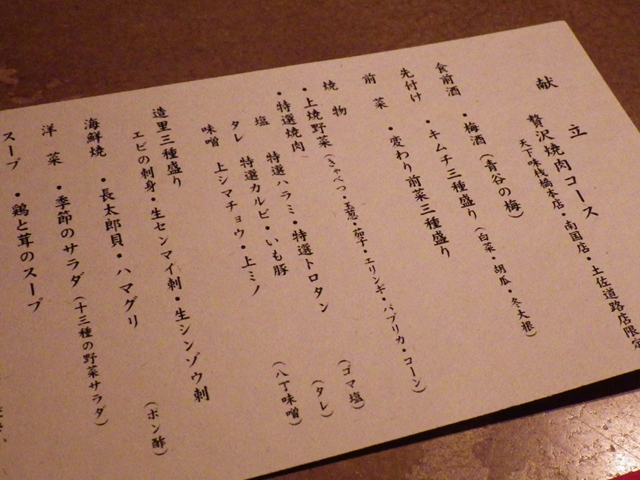 献立
贅沢焼肉コース
天下味桟橋本店・南国店・土佐道路店限定
食前酒 ・梅酒(青谷の梅)
先付け ・キムチ三種盛り(白菜・胡瓜・冬大根)
前菜 ・変わり前菜三種盛り
焼物 ・上焼野菜(きゃべつ・玉葱・茄子・エリンギ・パプリカ・コーン)
・特選焼肉
塩 特選ハラミ・特選トロタン (ゴマ塩)
タレ 特選カルビ・いも豚 (タレ)
味噌 上シマチョウ・上ミノ (八丁味噌)
造里三種盛り
エビの刺身・生センマイ刺・生シンゾウ刺
海鮮焼 ・長太郎貝・ハマグリ (ポン酢)
洋菜 ・季節のサラダ(十三種の野菜サラダ)
スープ ・鶏と茸のスープ